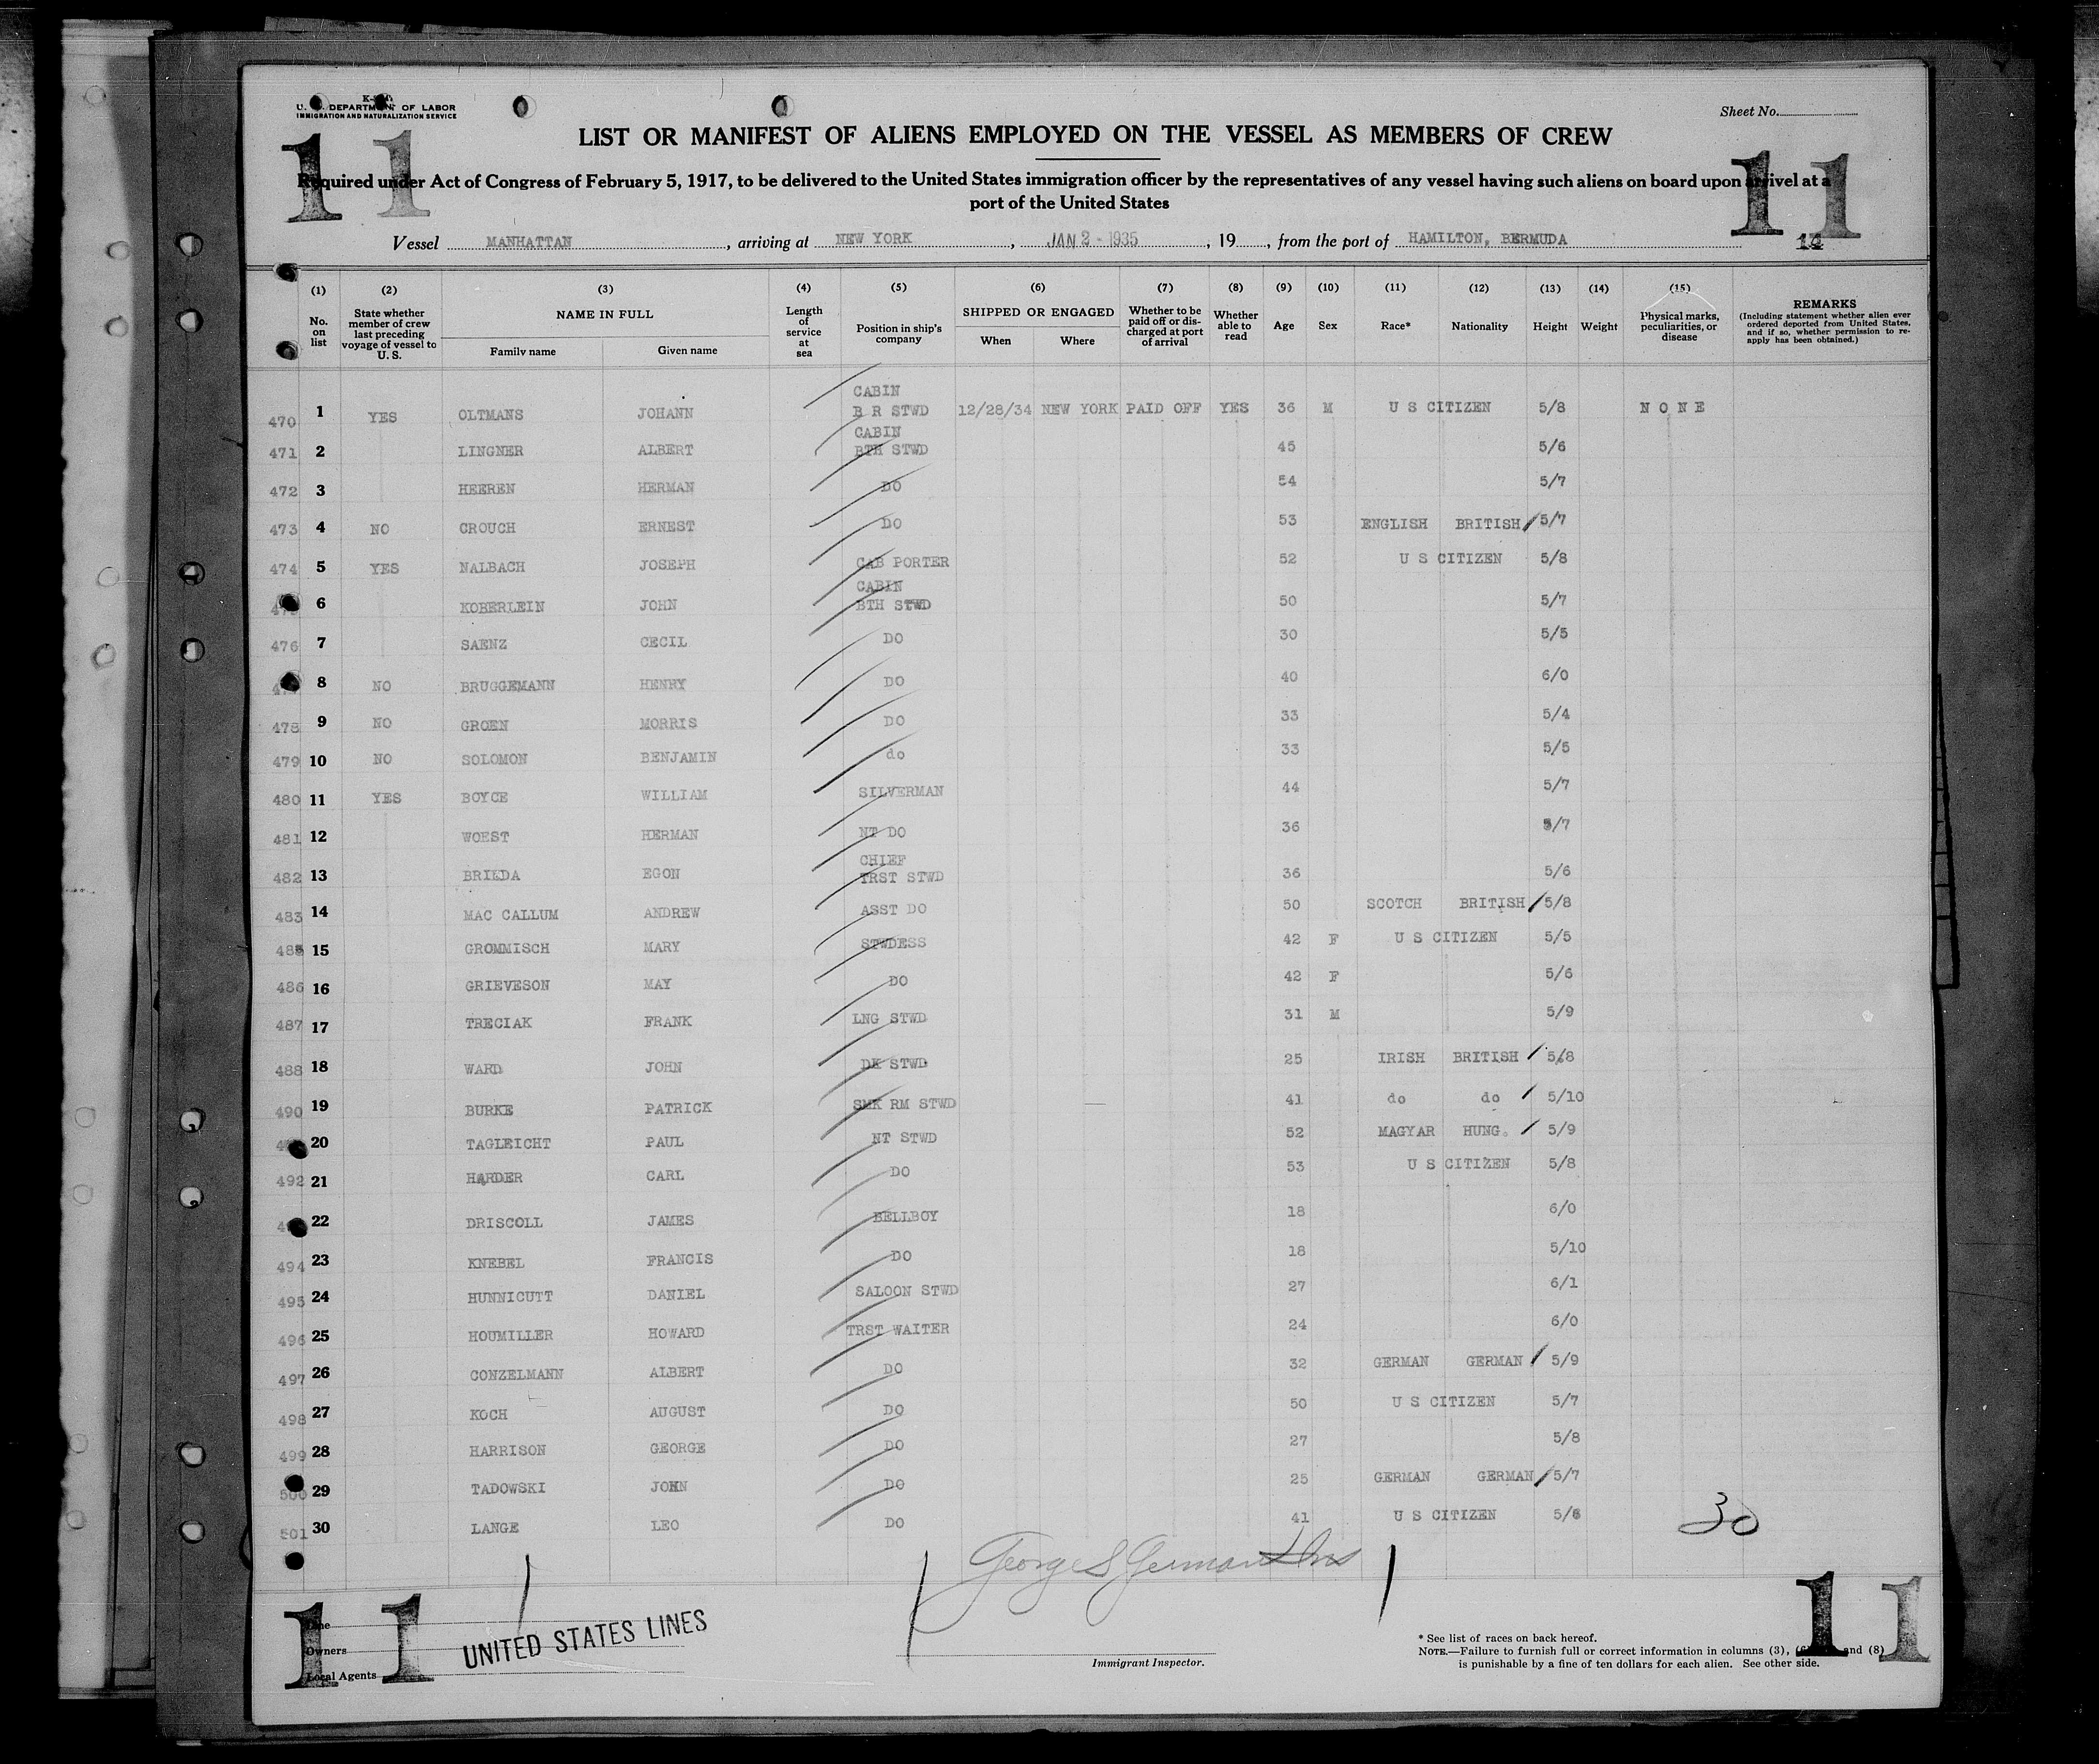 U. S. DEPARTMENT OF LABOR
IMMIGRATION AND NATURALIZATION SERVICE
Sheet No.
11 11
LIST OR MANIFEST OF ALIENS EMPLOYED ON THE VESSEL AS MEMBERS OF CREW
Required under Act of Congress of February 5, 1917, to be delivered to the United States immigration officer by the representatives of any vessel having such aliens on board upon arrivel at a
port of the United States
Vessel MANHATTAN, arriving at NEW YORK, JAN 2 - 1935, 19, from the port of HAMILTON, BERMUDA 14
(1) No. on list (2) State whether member of crew last preceding voyage of vessel to U. S. (3) NAME IN FULL Family name Given name (4) Length of service at sea (5) Position in ship's company (6) SHIPPED OR ENGAGED When Where (7) Whether to be paid off or discharged at port of arrival (8) Whether able to read (9) Age (10) Sex (11) Race* (12) Nationality (13) Height (14) Weight (15) Physical marks, peculiarities, or disease REMARKS (Including statement whether alien ever ordered deported from United States, and if so, whether permission to re-apply has been obtained.)
470 1 YES OLTMANS JOHANN CABIN B R STWD 12/28/34 NEW YORK PAID OFF YES 36 M U S CITIZEN 5/8 N O N E
471 2 LINGNER ALBERT CABIN BTH STWD 45 5/6
472 3 HEEREN HERMAN DO 54 5/7
473 4 NO CROUCH ERNEST DO 53 ENGLISH BRITISH 5/7
474 5 YES NALBACH JOSEPH CAB PORTER 52 U S CITIZEN 5/8
6 KOBERLEIN JOHN CABIN BTH STWD 50 5/7
476 7 SAENZ CECIL DO 30 5/5
8 NO BRUGGEMANN HENRY DO 40 6/0
478 9 NO GROEN MORRIS DO 33 5/4
479 10 NO SOLOMON BENJAMIN do 33 5/5
480 11 YES BOYCE WILLIAM SILVERMAN 44 5/7
481 12 WOEST HERMAN NT DO 36 5/7
482 13 BRILDA EGON CHIEF TRST STWD 36 5/6
483 14 MAC CALLUM ANDREW ASST DO 50 SCOTCH BRITISH 5/8
485 15 GROMMISCH MARY STWDESS 42 F U S CITIZEN 5/5
486 16 GRIEVESON MAY DO 42 F 5/6
487 17 TRECIAK FRANK LNG STWD 31 M 5/9
488 18 WARD JOHN DK STWD 25 IRISH BRITISH 5/8
490 19 BURKE PATRICK SMK RM STWD 41 do do 5/10
20 TAGLEICHT PAUL NT STWD 52 MAGYAR HUNG. 5/9
492 21 HARDER CARL DO 53 U S CITIZEN 5/8
22 DRISCOLL JAMES BELLBOY 18 6/0
494 23 KNEBEL FRANCIS DO 18 5/10
495 24 HUNNICUTT DANIEL SALOON STWD 27 6/1
496 25 HOUMILLER HOWARD TRST WAITER 24 6/0
497 26 CONZELMANN ALBERT DO 32 GERMAN GERMAN 5/9
498 27 KOCH AUGUST DO 50 U S CITIZEN 5/7
499 28 HARRISON GEORGE DO 27 5/8
500 29 TADOWSKI JOHN DO 25 GERMAN GERMAN 5/7
501 30 LANGE LEO DO 41 U S CITIZEN 5/6
30
George S German
11 11
Line
Owners
Local Agents
UNITED STATES LINES
Immigrant Inspector.
* See list of races on back hereof.
NOTE.—Failure to furnish full or correct information in columns (3), and (8)
is punishable by a fine of ten dollars for each alien. See other side.